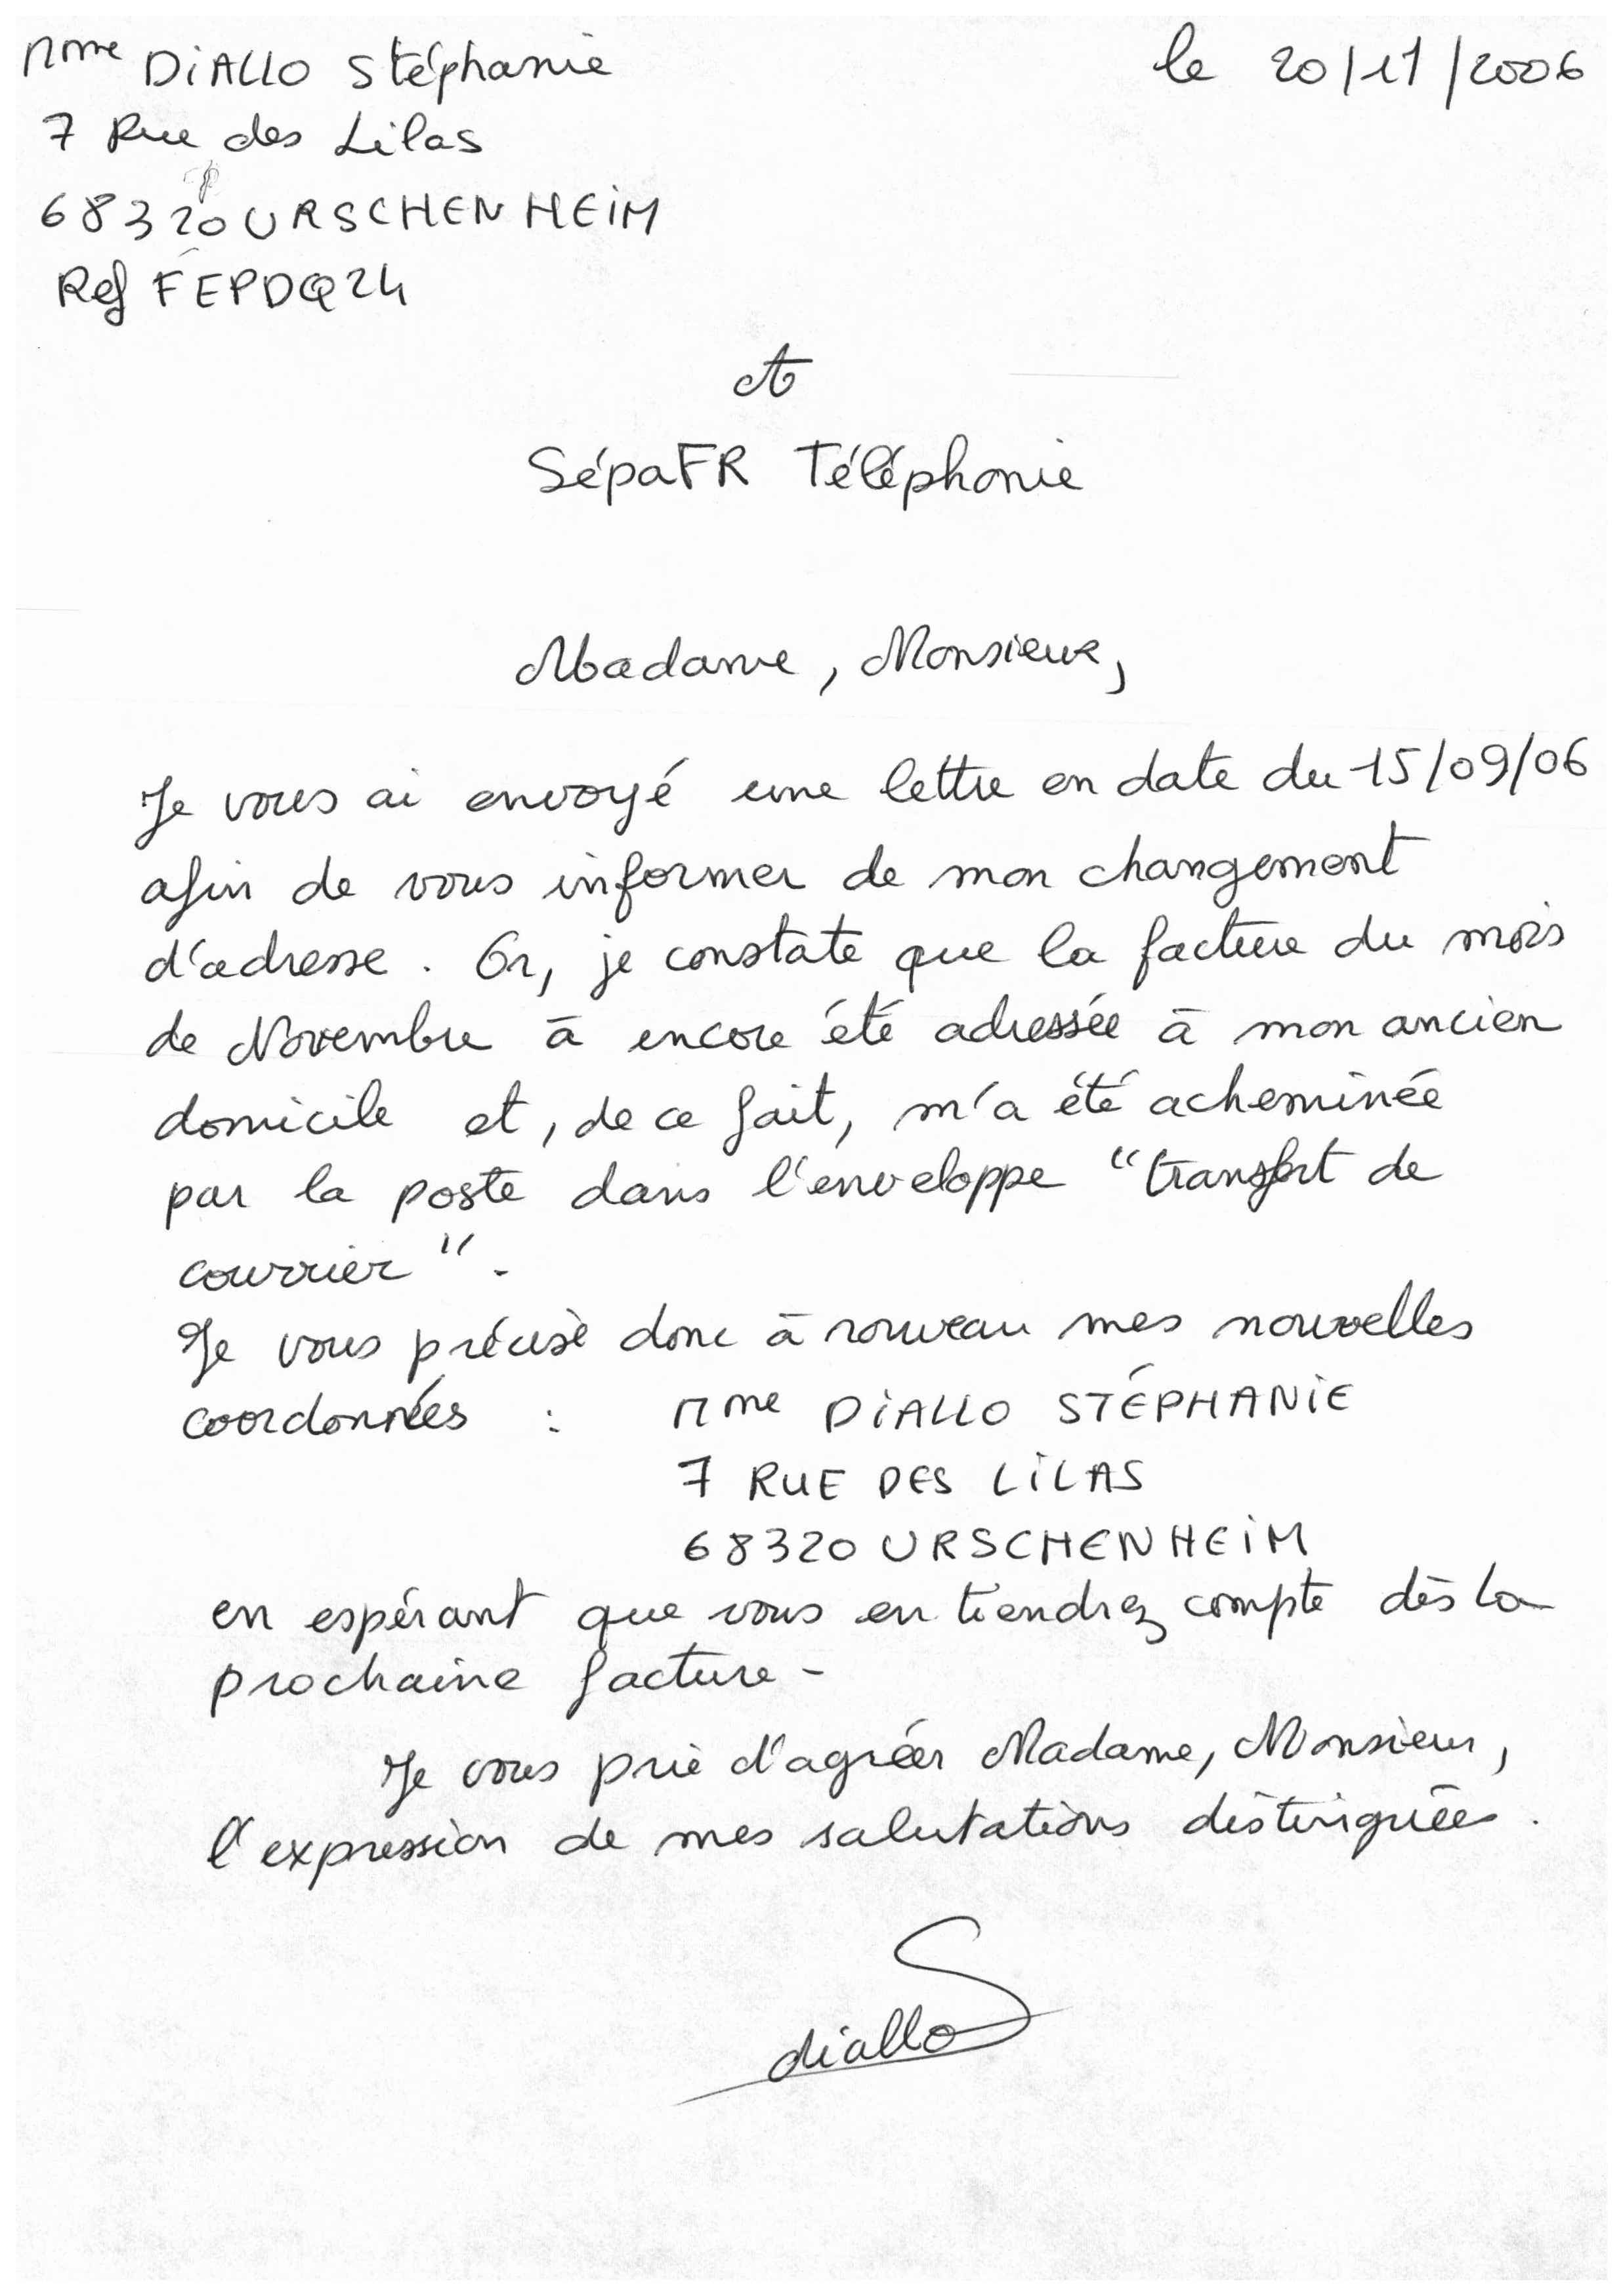 Mme DiALLO Stéphanie
le 20/11/2006
7 Rue des Lilas
68320 URSCHENHEiM
Ref FEPDQ24
A
SépaFR Téléphonie
Madame, Monsieur,
Je vous ai envoyé une lettre en date du 15/09/06
afin de vous informer de mon changement
d'adresse. Or, je constate que la facture du mois
de Novembre à encore été adressée à mon ancien
domicile et, de ce fait, m'a été acheminée
par la poste dans l'enveloppe "transfert de
courrier".
Je vous précise donc à nouveau mes nouvelles
coordonnées : Mme DiALLO STÉPHANiE
7 RUE DES LiLAS
68320 URSCHENHEiM
en espérant que vous en tiendrez compte dès la
prochaine facture -
Je vous prie d'agréer Madame, Monsieur,
l'expression de mes salutations distinguées.
diallo S